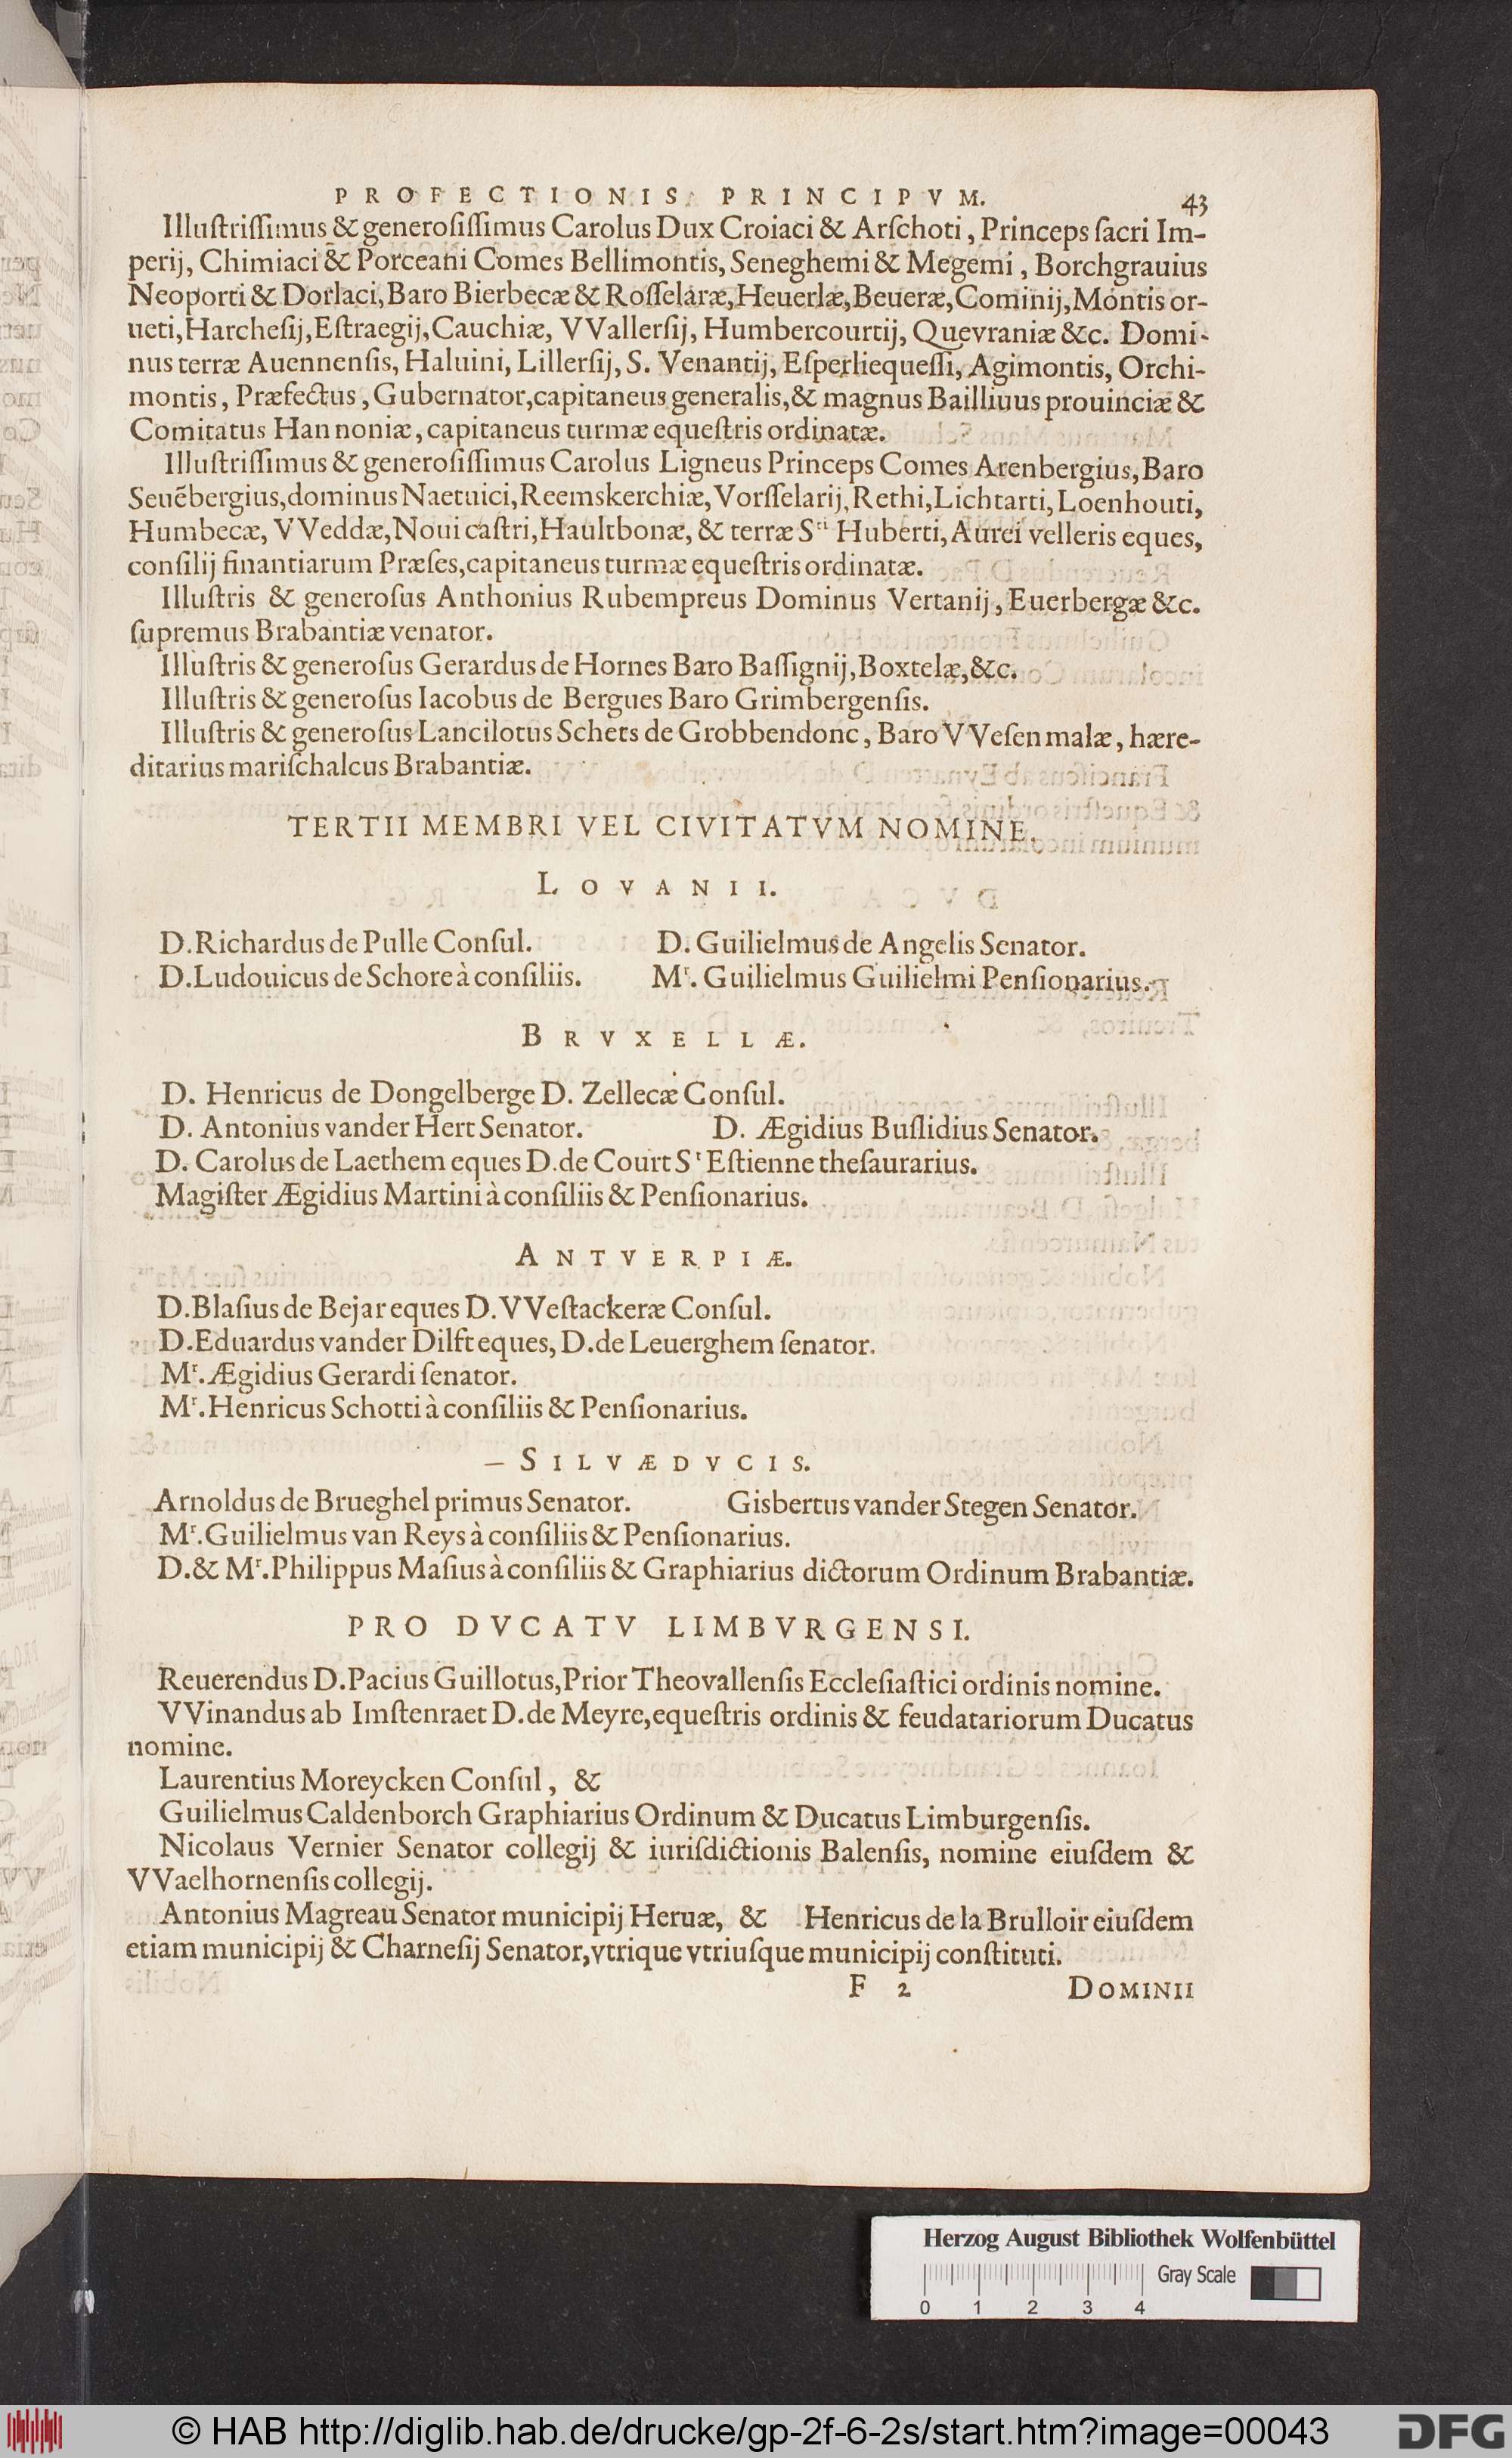 PROFECTIONIS PRINCIPVM. 43
Illuſtriſſimus & generoſiſſimus Carolus Dux Croiaci & Arſchoti, Princeps ſacri Im-
perij, Chimiaci & Porceani Comes Bellimontis, Seneghemi & Megemi, Borchgrauius
Neoporti & Dorlaci, Baro Bierbecæ & Roſſelaræ, Heuerlæ, Beueræ, Cominij, Montis or-
ueti, Harcheſij, Eſtraegij, Cauchiæ, VVallerſij, Humbercourtij, Quevraniæ &c. Domi-
nus terræ Auennenſis, Haluini, Lillerſij, S. Venantij, Eſperliequeſſi, Agimontis, Orchi-
montis, Præfectus, Gubernator, capitaneus generalis, & magnus Bailliuus prouinciæ &
Comitatus Hannoniæ, capitaneus turmæ equeſtris ordinatæ.
Illuſtriſſimus & generoſiſſimus Carolus Ligneus Princeps Comes Arenbergius, Baro
Seuēbergius, dominus Naetuici, Reemskerchiæ, Vorſſelarij, Rethi, Lichtarti, Loenhouti,
Humbecæ, VVeddæ, Noui caſtri, Haultbonæ, & terræ Sti Huberti, Aurei velleris eques,
conſilij finantiarum Præſes, capitaneus turmæ equeſtris ordinatæ.
Illuſtris & generoſus Anthonius Rubempreus Dominus Vertanij, Euerbergæ &c.
ſupremus Brabantiæ venator.
Illuſtris & generoſus Gerardus de Hornes Baro Baſſignij, Boxtelæ, &c.
Illuſtris & generoſus Iacobus de Bergues Baro Grimbergenſis.
Illuſtris & generoſus Lancilotus Schets de Grobbendonc, Baro VVeſenmalæ, hære-
ditarius mariſchalcus Brabantiæ.
TERTII MEMBRI VEL CIVITATVM NOMINE.
LOVANII.
D. Richardus de Pulle Conſul. D. Guilielmus de Angelis Senator.
D. Ludouicus de Schore à conſiliis. Mr. Guilielmus Guilielmi Penſionarius.
BRVXELLÆ.
D. Henricus de Dongelberge D. Zellecæ Conſul.
D. Antonius vander Hert Senator. D. Ægidius Buſlidius Senator.
D. Carolus de Laethem eques D. de Court St Eſtienne theſaurarius.
Magiſter Ægidius Martini à conſiliis & Penſionarius.
ANTVERPIÆ.
D. Blaſius de Bejar eques D. VVeſtackeræ Conſul.
D. Eduardus vander Dilft eques, D. de Leuerghem ſenator.
Mr. Ægidius Gerardi ſenator.
Mr. Henricus Schotti à conſiliis & Penſionarius.
SILVÆDVCIS.
Arnoldus de Brueghel primus Senator. Gisbertus vander Stegen Senator.
Mr. Guilielmus van Reys à conſiliis & Penſionarius.
D. & Mr. Philippus Maſius à conſiliis & Graphiarius dictorum Ordinum Brabantiæ.
PRO DVCATV LIMBVRGENSI.
Reuerendus D. Pacius Guillotus, Prior Theovallenſis Eccleſiaſtici ordinis nomine.
VVinandus ab Imſtenraet D. de Meyre, equeſtris ordinis & feudatariorum Ducatus
nomine.
Laurentius Moreycken Conſul, &
Guilielmus Caldenborch Graphiarius Ordinum & Ducatus Limburgenſis.
Nicolaus Vernier Senator collegij & iuriſdictionis Balenſis, nomine eiuſdem &
VVaelhornenſis collegij.
Antonius Magreau Senator municipij Heruæ, & Henricus de la Brulloir eiuſdem
etiam municipij & Charneſij Senator, vtrique vtriuſque municipij conſtituti.
F 2 DOMINII
Herzog August Bibliothek Wolfenbüttel
Gray Scale
0 1 2 3 4
© HAB http://diglib.hab.de/drucke/gp-2f-6-2s/start.htm?image=00043 DFG